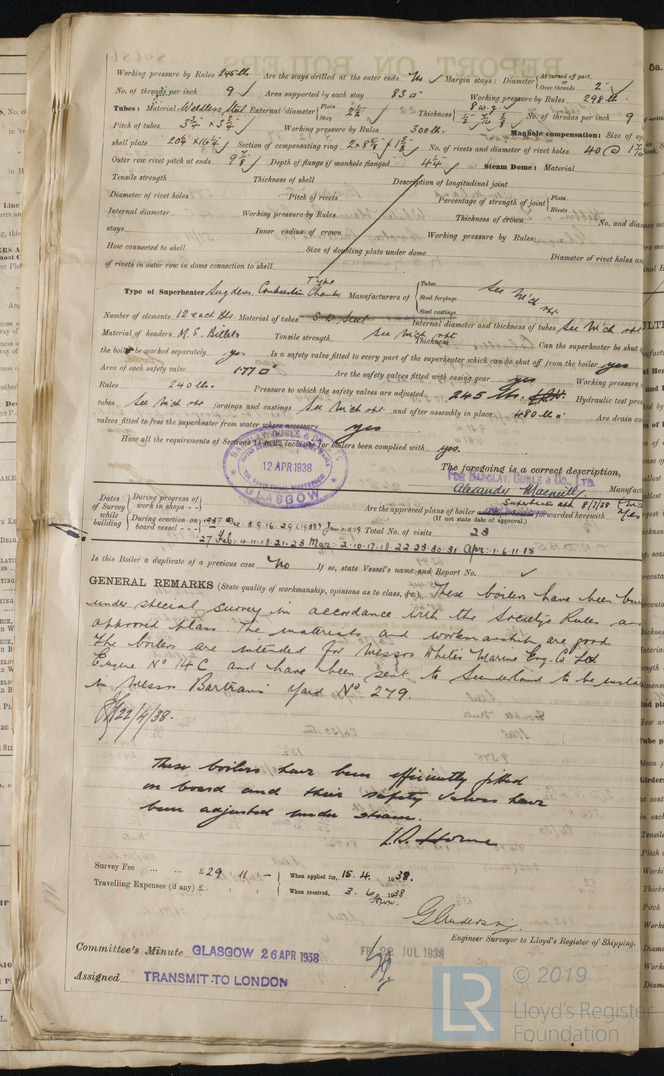 Working pressure by Rules 245 lb Are the stays drilled at the outer ends No Margin stays: Diameter { At turned off part, or Over threads 2"
No. of threads per inch 9 Area supported by each stay 83 □" Working pressure by Rules 298 lb
Tubes: Material Weldless Steel External diameter { Plain Stay 2½ Thickness { 8 w.g. No. of threads per inch 9
Pitch of tubes 3¾ × 3¾ Working pressure by Rules 300 lb. Manhole compensation: Size of
shell plate 20¼ × 16¼ Section of compensating ring No. of rivets and diameter of rivet holes 40 @ 1
Outer row rivet pitch at ends 9⅞ Depth of flange if manhole flanged 4¼ Steam Dome: Material
Tensile strength Thickness of shell Description of longitudinal joint
Diameter of rivet holes Pitch of rivets Percentage of strength of joint { Plate Rivets
Internal diameter Working pressure by Rules Thickness of crown No. and
stays Inner radius of crown Working pressure by Rules
How connected to shell Size of doubling plate under dome Diameter of rivet holes
of rivets in outer row in dome connection to shell
Type of Superheater Sugdens Combustion Chamber Type Manufacturers of { Tubes Steel forgings Steel castings See M'ch rpt.
Number of elements 12 each Blr. Material of tubes S.D. Steel Internal diameter and thickness of tubes See M'ch rpt
Material of headers M.S. Billets Tensile strength See M'ch rpt Thickness Can the superheater be shut
the boiler be worked separately yes. Is a safety valve fitted to every part of the superheater which can be shut off from the boiler yes
Area of each safety valve 1.77 □" Are the safety valves fitted with easing gear yes Working pressure
Rules 240 lbs. Pressure to which the safety valves are adjusted 245 lbs. Hydraulic test
tubes See M'ch rpt forgings and castings See M'ch rpt and after assembly in place 480 lbs Are drain
valves fitted to free the superheater from water where necessary yes
Have all the requirements of Sections 14 to 22 inclusive for boilers been complied with yes.
BARCLAY CURLE & CO. LTD
12 APR 1938
GLASGOW
The foregoing is a correct description,
FOR BARCLAY, CURLE & CO. LTD.
Alexander Macneill
Dates of Survey while building { During progress of work in shops - - During erection on board vessel - - - 1937 Dec. 3.9.16.29 (1938) Jan
27 Feb. 4.11.18.21.23 Mar. 2.10.17.18 22 23.30.31 Apr. 1.6.11.15
Are the approved plans of boiler forwarded herewith
(If not state date of approval.)
Superheater 8/7/38
Total No. of visits 23
Is this Boiler a duplicate of a previous case No If so, state Vessel's name and Report No.
GENERAL REMARKS (State quality of workmanship, opinions as to class, &c.) These boilers have been
under special survey in accordance with the Society's Rules, and
approved plans. The materials and workmanship are good.
The boilers are intended for Messrs Whites Marine Eng. Co Ltd
Engine No 14C and have been sent to Sunderland to be
in Messrs Bartrams Yard No 279.
22/4/38.
These boilers have been efficiently fitted
on board and their safety valves have
been adjusted under steam.
Horne
Survey Fee ... ... £29 : 11 : - When applied for, 15.4.1938.
Travelling Expenses (if any) £ : : When received, 3.6.1938
G. Anderson
Engineer Surveyor to Lloyd's Register of Shipping.
Committee's Minute GLASGOW 26 APR 1938 FRI 22 JUL 1938
Assigned TRANSMIT TO LONDON
LR © 2019
Lloyd's Register
Foundation